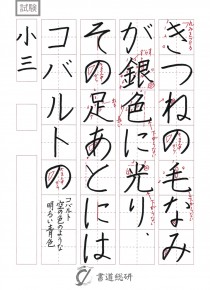 試験
きつねの毛なみ
が銀色に光り、
その足あとには
コバルトの
コバルト
空の色のような
明るい青色
小三
書道総研